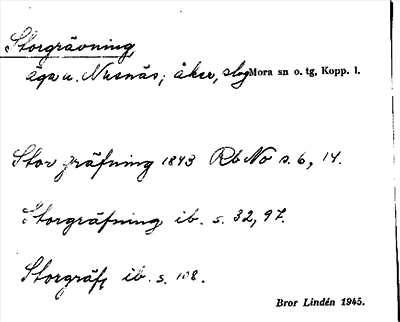 Storgrävning,
äga u. Nusnäs; åker, slog Mora sn o. tg, Kopp. l.
Stor gräfning 1843 Rb No s. 6, 14.
Storgräfning ib. s. 32, 97.
Storgräf, ib. s. 108.
Bror Lindén 1945.